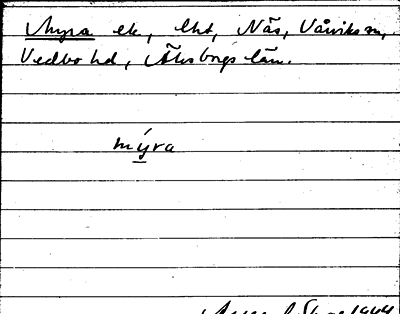 Myra ek, Uht, Näs, Vårviks sn,
Vedbo hd, Älvsborgs län.
mýra
1944